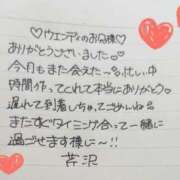 ♡ウエンディのお兄様♡
ありがとうございました。
今月もまた会えた〜。忙しい中
時間作ってくれて本当にありがとう
遅れて到着しちゃってごめんね
またすぐタイミング合って一緒に
過ごせます様に〜!!
芹沢